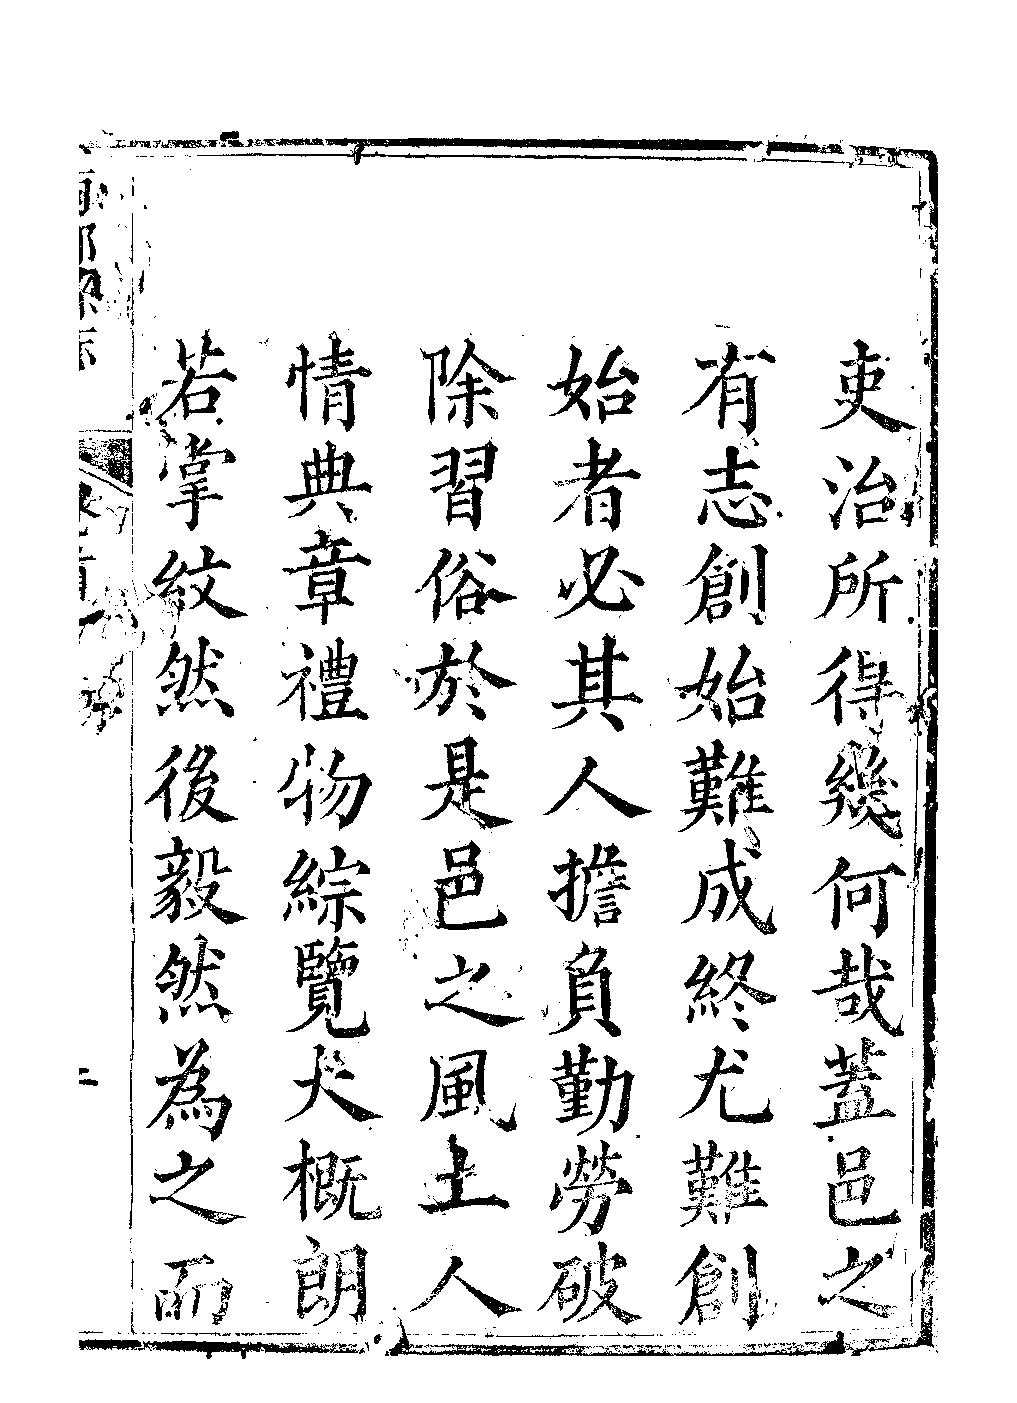 吏治所得幾何哉蓋邑之
有志創始難成終尤難創
始者必其人擔負勤勞破
除習俗於是邑之風土人
情典章禮物綜覽大概朗
若掌紋然後毅然為之而